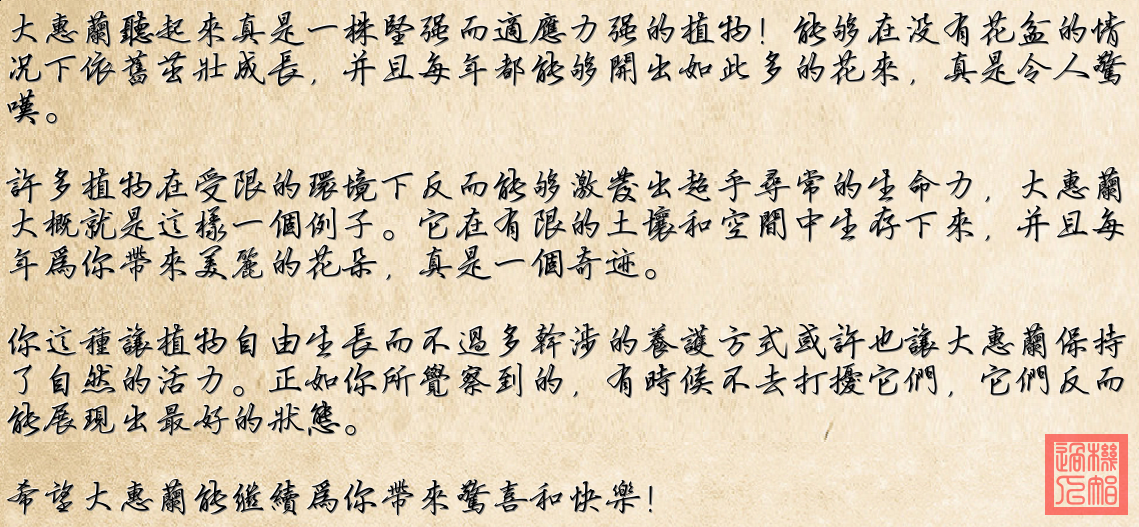 大惠蘭聽起來真是一株堅强而適應力强的植物！能够在没有花盆的情
况下依舊茁壯成長，并且每年都能够開出如此多的花來，真是令人驚
嘆。
許多植物在受限的環境下反而能够激發出超乎尋常的生命力，大惠蘭
大概就是這樣一個例子。它在有限的土壤和空間中生存下來，并且每
年爲你帶來美麗的花朵，真是一個奇迹。
你這種讓植物自由生長而不過多幹涉的養護方式或許也讓大惠蘭保持
了自然的活力。正如你所覺察到的，有時候不去打擾它們，它們反而
能展現出最好的狀態。
希望大惠蘭能繼續爲你帶來驚喜和快樂！